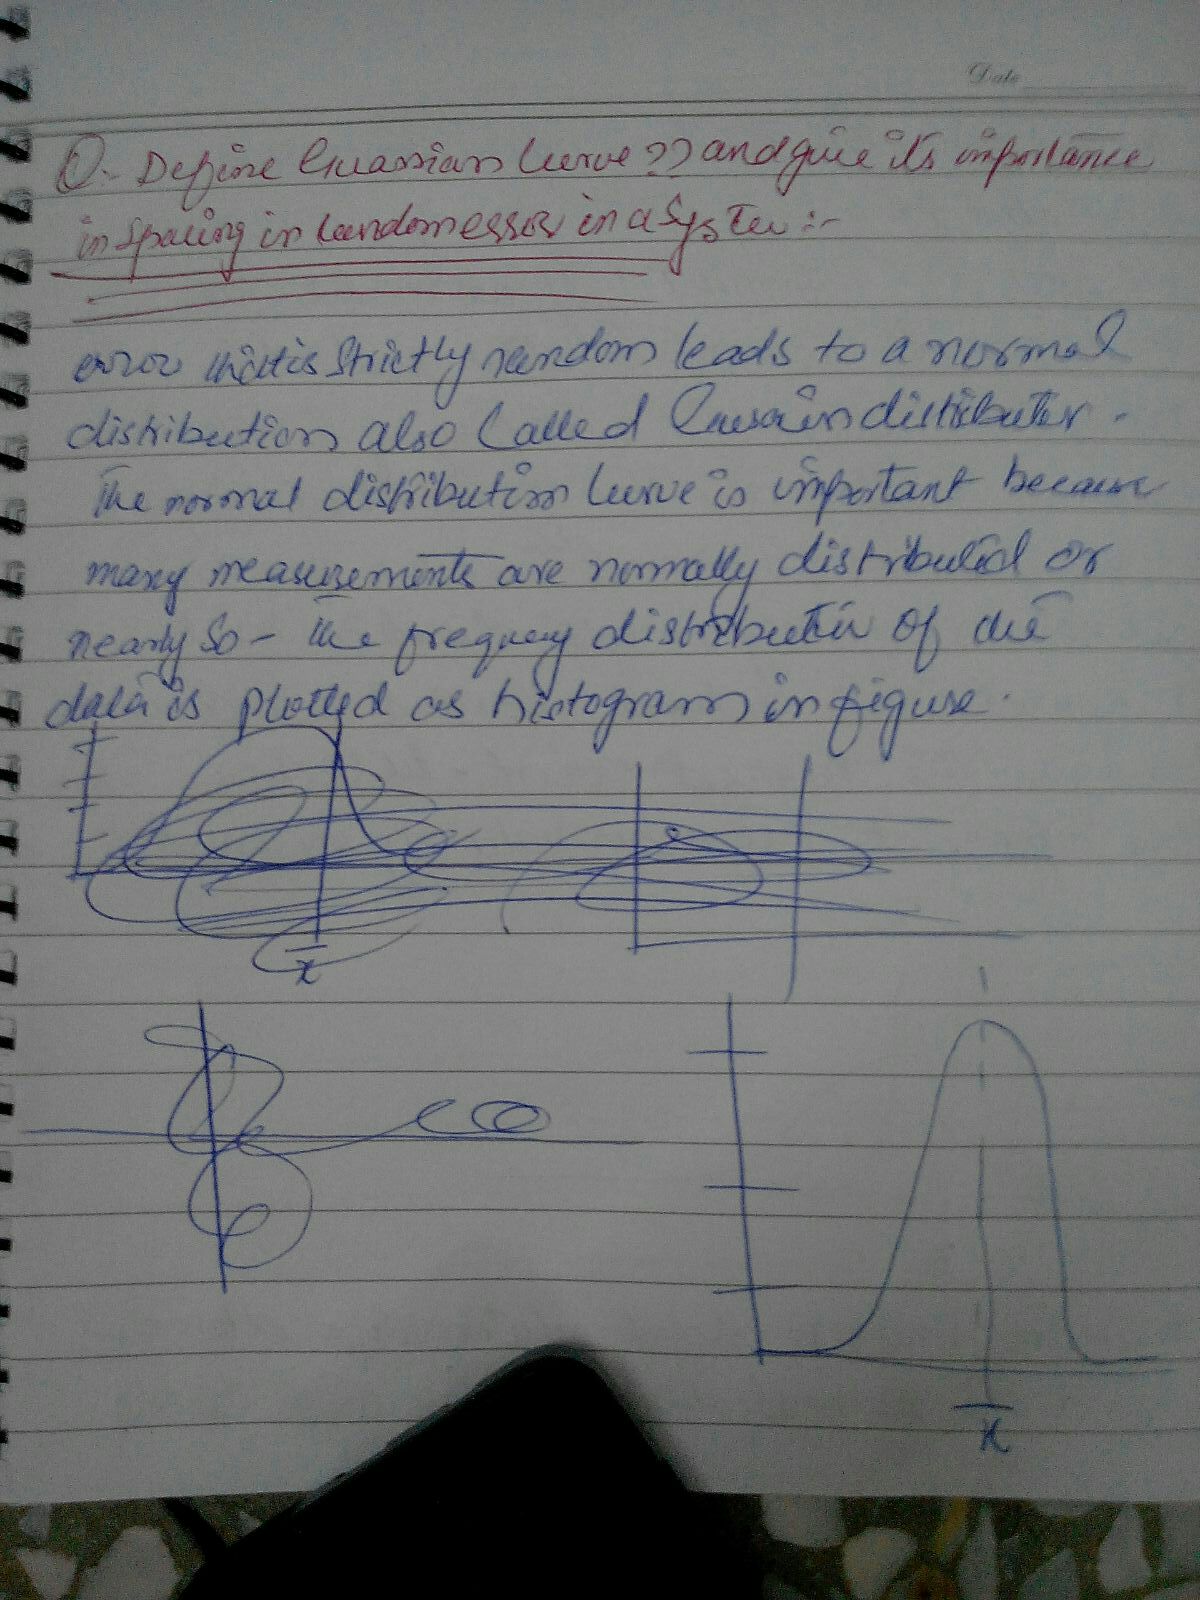 Date
Q:- Define Guassian Curve ?? and give its importance
in Spacing in Randomessor in a System :-
error that is Strictly random leads to a normal
distribution also Called distribution.
The normal distribution Curve is important because
many measurements are normally distributed or
nearly So - The frequency distribution of the
data is plotted as histogram in figure.
x̄
x̄